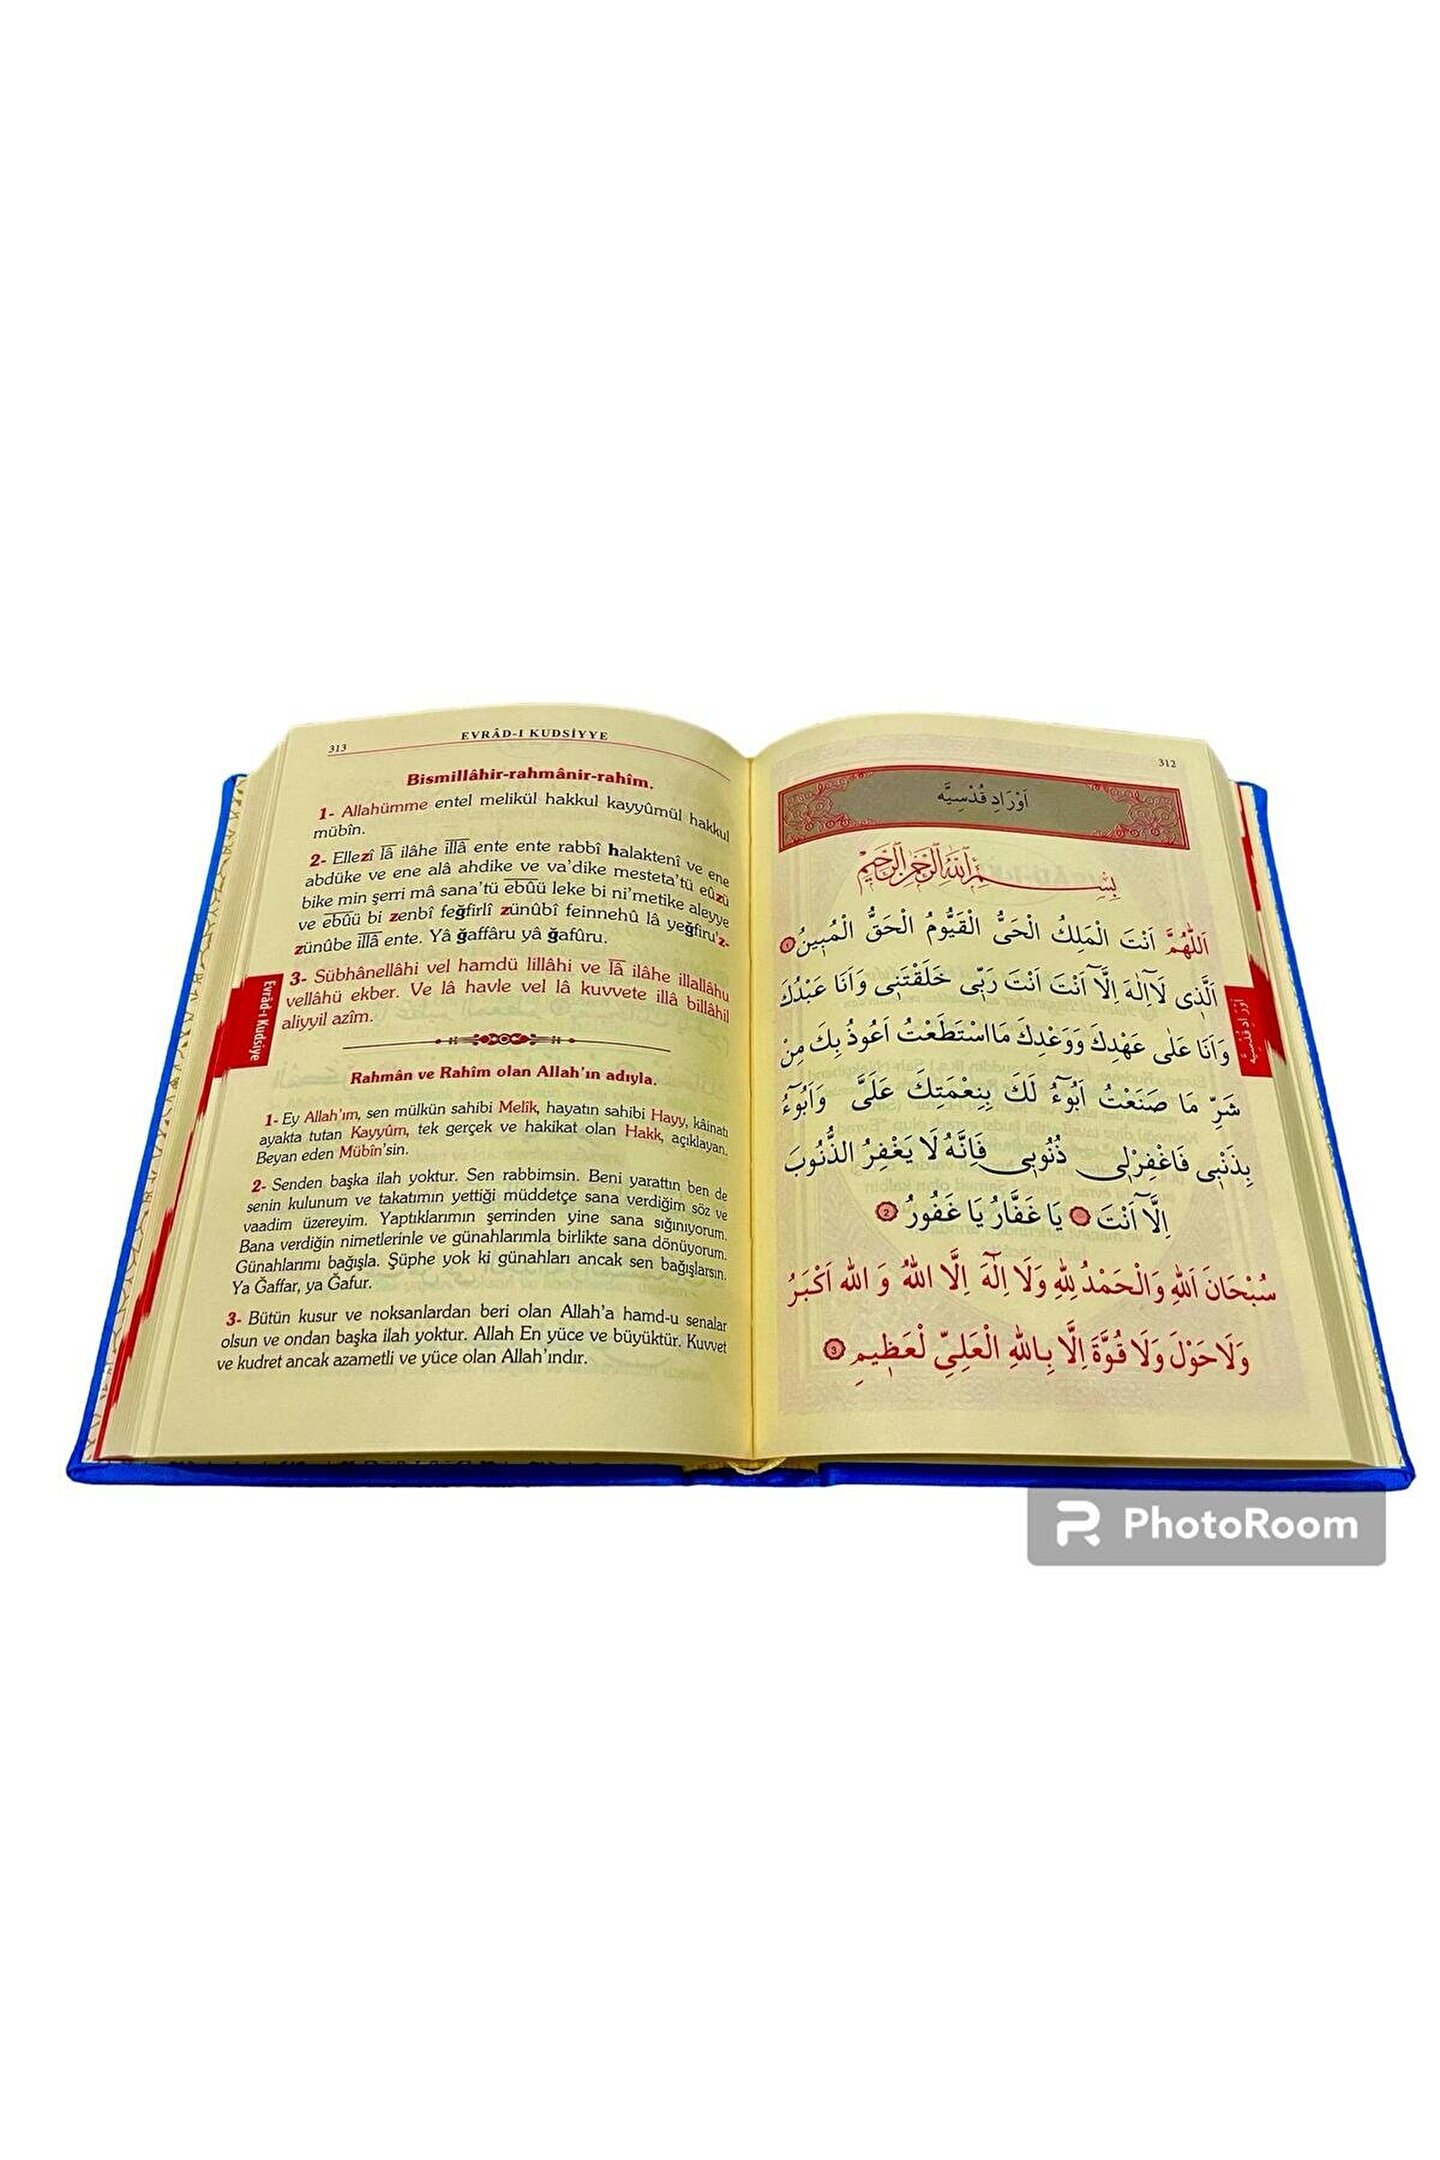 313
EVRÂD-I KUDSİYYE
Bismillâhir-rahmânir-rahîm.
1- Allahümme entel melikül hakkul kayyûmül hakkul
mübîn.
2- Ellezî lâ ilâhe illâ ente ente rabbî halaktenî ve ene
abdüke ve ene alâ ahdike ve va'dike mesteta'tü eûzü
bike min şerri mâ sana'tü ebûü leke bi ni'metike aleyye
ve ebûü bi zenbî feğfirlî zünûbî feinnehû lâ yeğfiru'z-
zünûbe illâ ente. Yâ ğaffâru yâ ğafûru.
3- Sübhânellâhi vel hamdü lillâhi ve lâ ilâhe illallâhu
vellâhü ekber. Ve lâ havle vel lâ kuvvete illâ billâhil
aliyyil azîm.
Evrâd-ı Kudsiye
Rahmân ve Rahîm olan Allah'ın adıyla.
1- Ey Allah'ım, sen mülkün sahibi Melîk, hayatın sahibi Hayy, kâinatı
ayakta tutan Kayyûm, tek gerçek ve hakikat olan Hakk, açıklayan,
Beyan eden Mübîn'sin.
2- Senden başka ilah yoktur. Sen rabbimsin. Beni yarattın ben de
senin kulunum ve takatımın yettiği müddetçe sana verdiğim söz ve
vaadim üzereyim. Yaptıklarımın şerrinden yine sana sığınıyorum.
Bana verdiğin nimetlerinle ve günahlarımla birlikte sana dönüyorum.
Günahlarımı bağışla. Şüphe yok ki günahları ancak sen bağışlarsın.
Ya Ğaffar, ya Ğafur.
3- Bütün kusur ve noksanlardan beri olan Allah'a hamd-u senalar
olsun ve ondan başka ilah yoktur. Allah En yüce ve büyüktür. Kuvvet
ve kudret ancak azametli ve yüce olan Allah'ındır.
312
اَوْرَادِ قُدْسِيَّه
بِسْمِ اللهِ الرَّحْمٰنِ الرَّحِيمِ
اَللّٰهُمَّ اَنْتَ الْمَلِكُ الْحَىُّ الْقَيُّومُ الْحَقُّ الْمُبِينُ ١
اَلَّذِى لَآاِلٰهَ اِلَّآ اَنْتَ اَنْتَ رَبِّى خَلَقْتَنِى وَاَنَا عَبْدُكَ
وَاَنَا عَلٰى عَهْدِكَ وَوَعْدِكَ مَااسْتَطَعْتُ اَعُوذُ بِكَ مِنْ
شَرِّ مَا صَنَعْتُ اَبُوٓءُ لَكَ بِنِعْمَتِكَ عَلَىَّ وَاَبُوٓءُ
بِذَنْبِى فَاغْفِرْلِى ذُنُوبِى فَاِنَّهُ لَا يَغْفِرُ الذُّنُوبَ
اِلَّآ اَنْتَ يَا غَفَّارُ يَا غَفُورُ ٢
سُبْحَانَ اللهِ وَالْحَمْدُ لِلّٰهِ وَلَا اِلٰهَ اِلَّا اللهُ وَ الله اَكْبَرُ
وَلَاحَوْلَ وَلَا قُوَّةَ اِلَّا بِاللهِ الْعَلِىِّ لْعَظِيمِ ٣
اَوْرَادِ قُدْسِيَّه
PhotoRoom